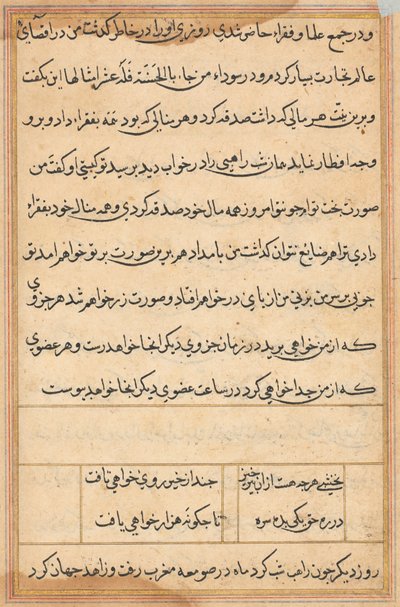 و در جمع علما و فقراء حاضر شدي روزي او را در خاطر گذشت من در اقصاي
عالم تجارت بسيار كردم و در سوداء من جاء بالحسنة فله عشر امثالها اين بكفت
و برين نيت هر مالي كه داشت صدقه كرد و هر منالي كه بود همه بفقراء داد و برو
وجه افطار نمايد همان شب راهبي را در خواب ديد پرسيد تو كيستي او كفت من
صورت بخت توام چون تو امروز همه مال خود صدقه كردي و همه منال خود بفقراء
دادي ترا هم ضايع نتوان كذاشت من بامداد هم برين صورت بر تو خواهم امد تو
چوبي بر سر من بزني من از پاي در خواهم افتاد و صورت زر خواهم شد هر جزوي
كه از من خواهي بريد در زمان جزوي ديكر انجا خواهد رست و هر عضوي
كه از من جدا خواهي كرد در ساعت عضوي ديكر انجا خواهد پيوست
نخشبي هرچه هست ازان برخيز چند از خير روي خواهي تافت
در ره حق يكي بده سره تا چكونه هزار خواهي يافت
روز ديكر چون راهب شب كرد ماه در صومعه مغرب رفت و زاهد جهان كرد